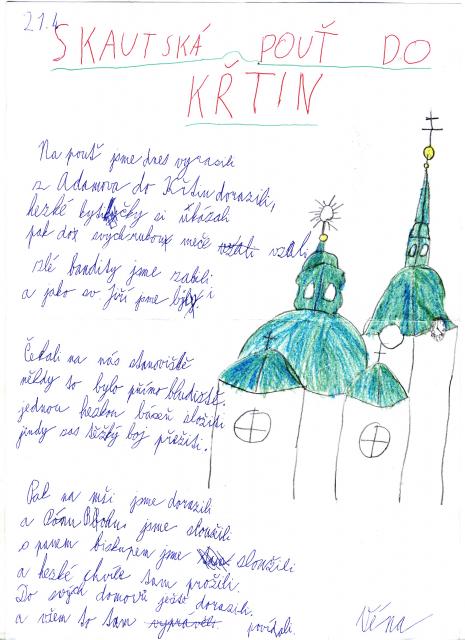 21.4
SKAUTSKÁ POUŤ DO
KŘTIN
Na pouť jsme dnes vyrazili
z Adamova do Křtin dorazili,
hezké kytičky si ukázali
pak do svých rukou meče vzali
zlé bandity jsme zabili
a jako sv Jiří jsme byli.
Čekali na nás stanoviště
někdy to bylo přímo bludiště.
jednou hezkou báseň složiti
jindy zas těžký boj přežiti.
Pak na mši jsme dorazili
a Pánu Bohu jsme sloužili
s panem biskupem jsme sloužili
a hezké chvíle tam prožili.
Do svých domovů ještě dorazili.
a všem to tam vyprávěli. povídali.
Věna